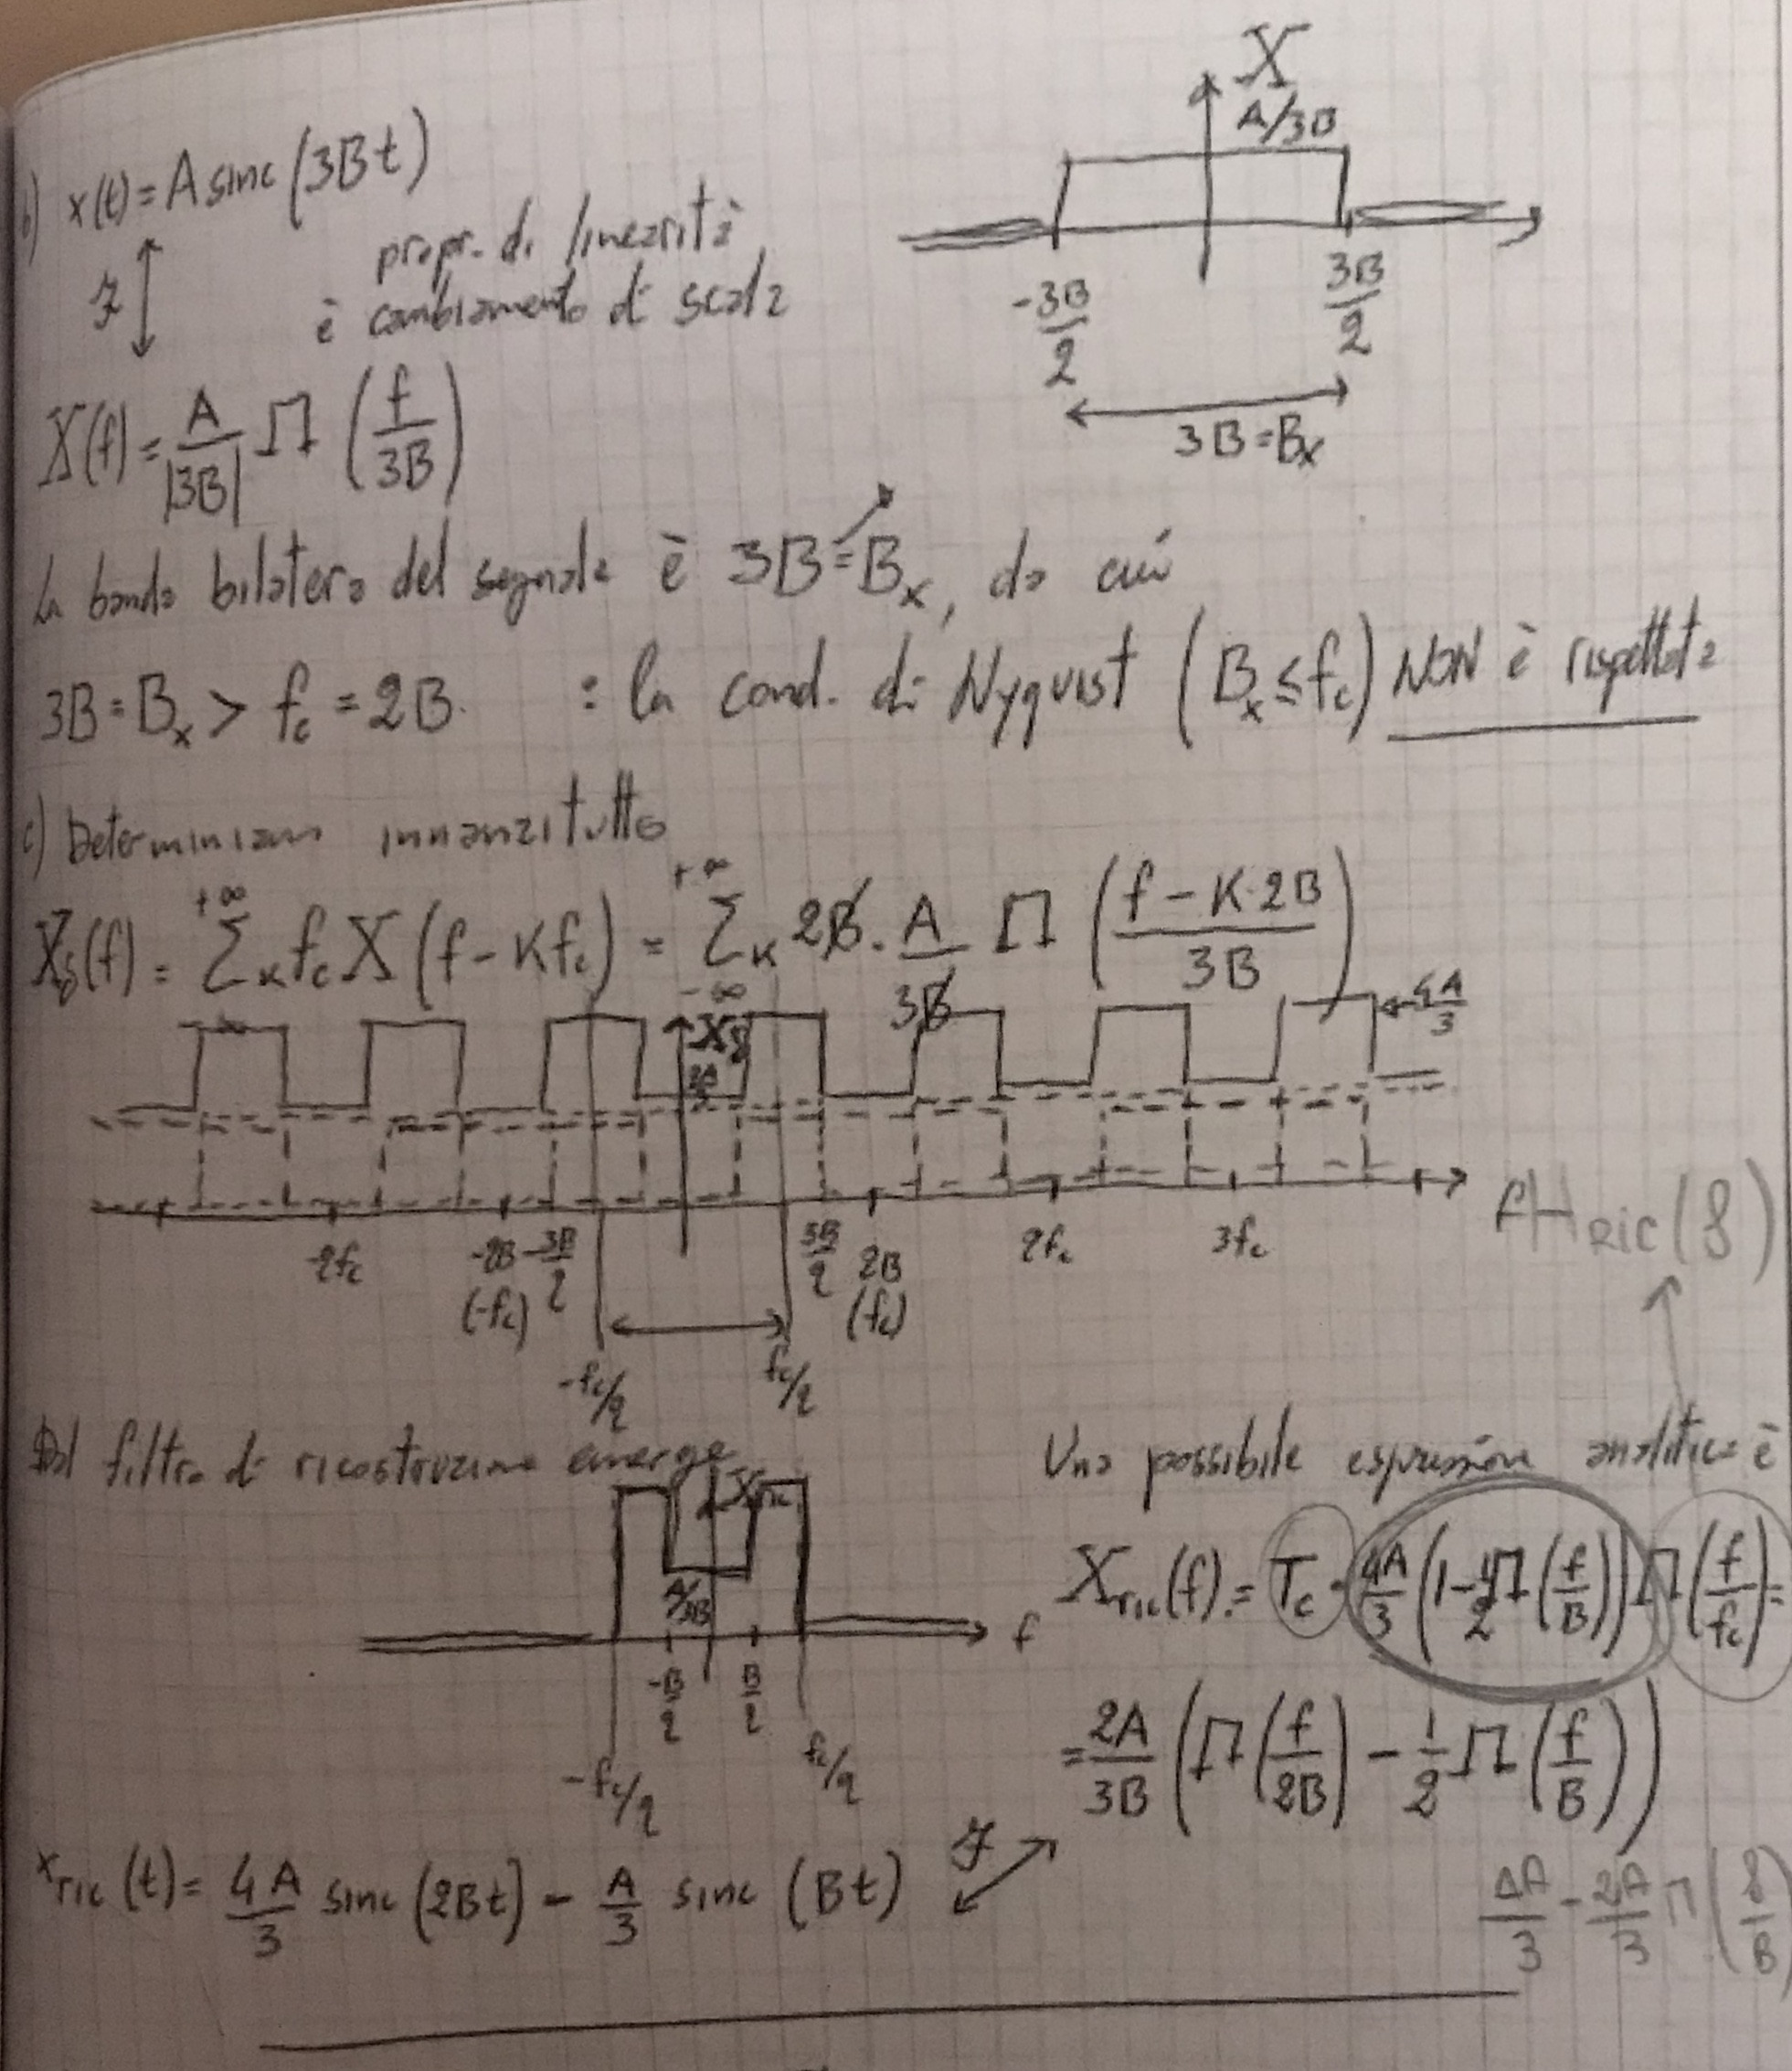 b) x(t) = A sinc (3Bt)
X
A/3B
F propr. di linearità
e cambiamento di scala
-3B/2 3B/2
3B = Bx
X(f) = A/|3B| Π (f/3B)
La banda bilatera del segnale è 3B = Bx, da cui
3B = Bx > fc = 2B. : la cond. di Nyquist (Bx ≤ fc) NON è rispettata
c) Determiniamo innanzitutto
Xδ(f) = Σk fc X (f - Kfc) = Σk 2B · A/3B Π ((f - K·2B)/3B)
+∞ +∞
-∞
Xδ
4A/3
2A/3
-2fc -2B (-fc) -3B/2 3B/2 2B (fc) 2fc 3fc f
-fc/2 fc/2
HRIC(f)
Dal filtro di ricostruzione emerge
Xric
A/3B
-B/2 B/2 f
-fc/2 fc/2
Una possibile espressione analitica è
Xric(f) = Tc · 4A/3 (1 - 1/2 Π (f/B)) Π (f/fc) =
= 2A/3B (Π (f/2B) - 1/2 Π (f/B))
F
xric (t) = 4A/3 sinc (2Bt) - A/3 sinc (Bt)
4A/3 - 2A/3 Π (f/B)